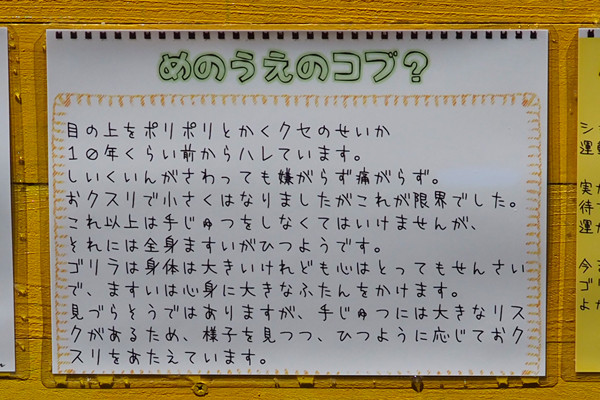 めのうえのコブ?
目の上をポリポリとかくクセのせいか
10年くらい前からハレています。
しいくいんがさわっても嫌がらず痛がらず。
おクスリで小さくはなりましたがこれが限界でした。
これ以上は手じゅつをしなくてはいけませんが、
それには全身ますいがひつようです。
ゴリラは身体は大きいけれども心はとってもせんさい
で、ますいは心身に大きなふたんをかけます。
見づらそうではありますが、手じゅつには大きなリス
クがあるため、様子を見つつ、ひつように応じておク
スリをあたえています。
シ
運
実
待
運
今
ゴ
よ